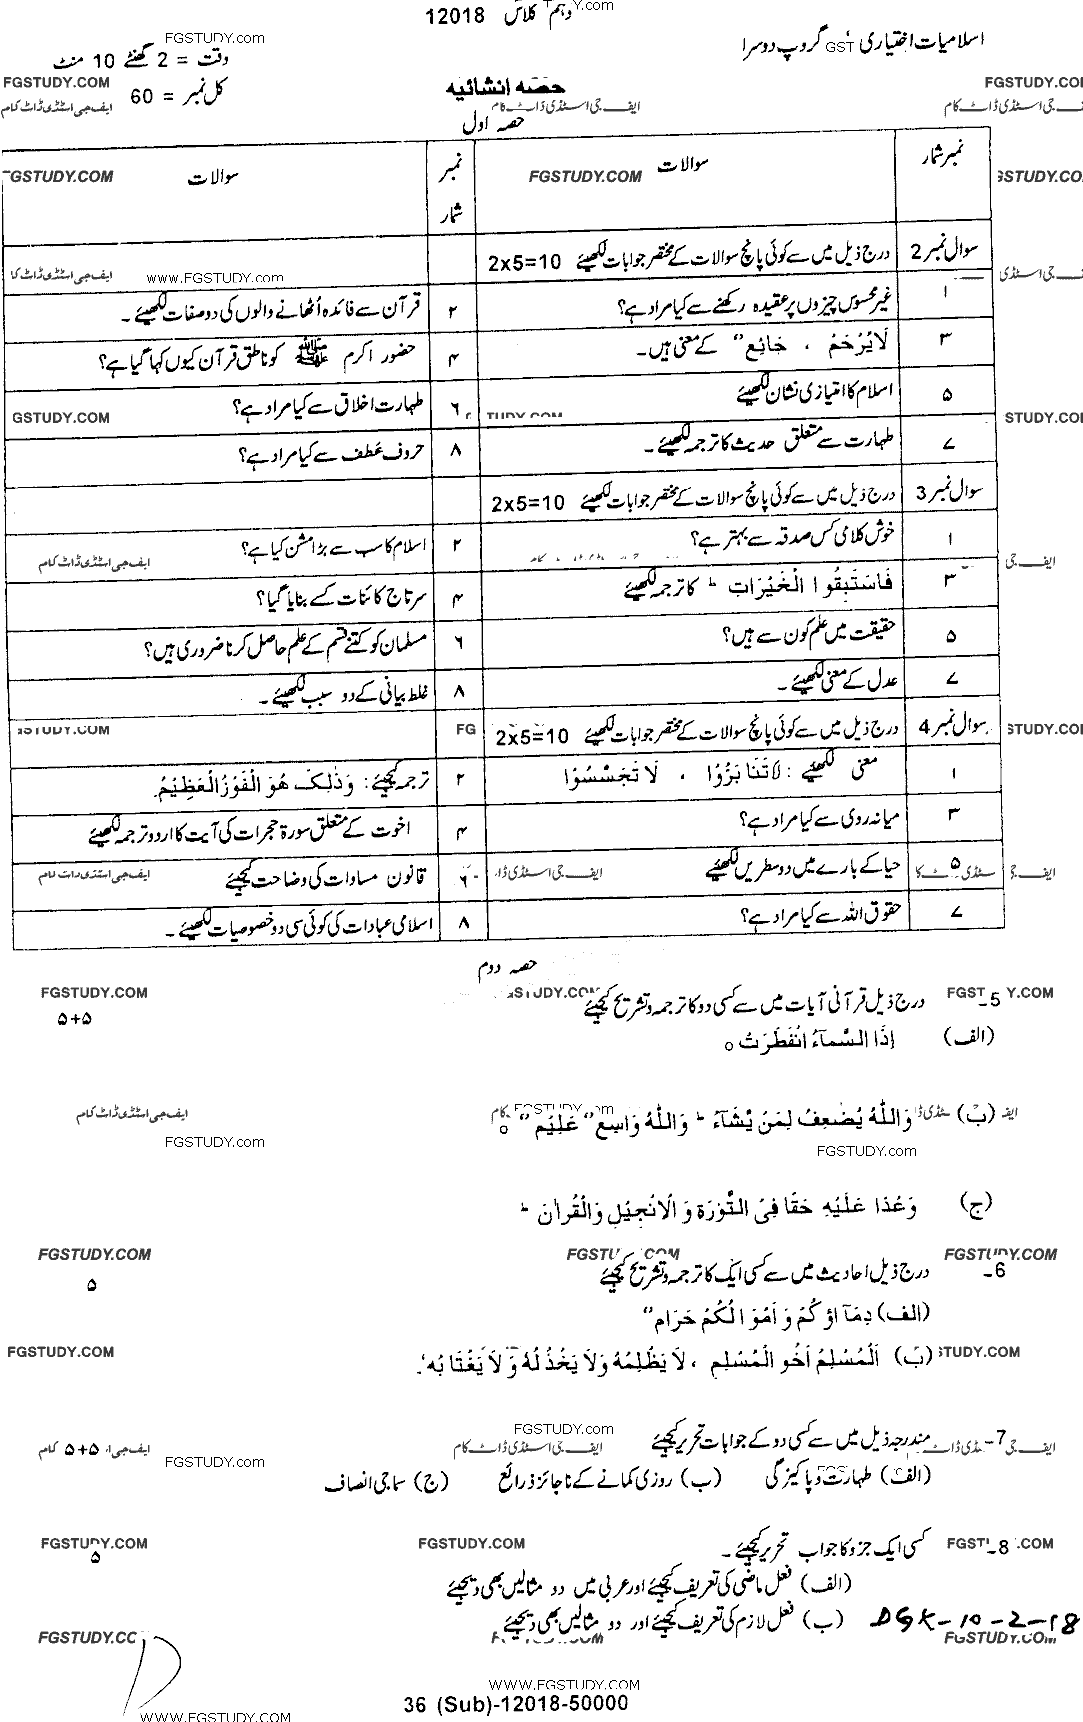 دہم کلاس 12018
اسلامیات اختیاری GST گروپ دوسرا
وقت = 2 گھنٹے 10 منٹ
کل نمبر = 60
حصہ انشائیہ
حصہ اول
نمبر شمار سوالات نمبر شمار سوالات
سوال نمبر 2 درج ذیل میں سے کوئی پانچ سوالات کے مختصر جوابات لکھیئے 2x5=10
۱ غیر محسوس چیزوں پر عقیدہ رکھنے سے کیا مراد ہے؟ ۲ قرآن سے فائدہ اُٹھانے والوں کی دو صفات لکھیئے۔
۳ لَايُرْحَمُ ، جَائِع" کے معنی ہیں۔ ۴ حضور اکرم ﷺ کو ناطق قرآن کیوں کہا گیا ہے؟
۵ اسلام کا امتیازی نشان لکھیئے ۶ طہارت اخلاق سے کیا مراد ہے؟
۷ طہارت سے متعلق حدیث کا ترجمہ لکھیئے۔ ۸ حروف عطف سے کیا مراد ہے؟
سوال نمبر 3 درج ذیل میں سے کوئی پانچ سوالات کے مختصر جوابات لکھیئے 2x5=10
۱ خوش کلامی کس صدقہ سے بہتر ہے؟ ۲ اسلام کا سب سے بڑا مشن کیا ہے؟
۳ فَاسْتَبِقُوا الْخَيْرَاتِ ط کا ترجمہ لکھیئے ۴ سرتاج کائنات کسے بنایا گیا؟
۵ حقیقت میں علم کون سے ہیں؟ ۶ مسلمان کو کتنے قسم کے علم حاصل کرنا ضروری ہیں؟
۷ عدل کے معنی لکھیئے۔ ۸ غلط بیانی کے دو سبب لکھیئے۔
سوال نمبر 4 درج ذیل میں سے کوئی پانچ سوالات کے مختصر جوابات لکھیئے 2x5=10
۱ معنی لکھیئے : لَاتَنَابَزُوْا ، لَا تَجَسَّسُوْا ۲ ترجمہ کیجئے: وَذٰلِکَ هُوَ الْفَوْزُالْعَظِيْمُ
۳ میانہ روی سے کیا مراد ہے؟ ۴ اخوت کے متعلق سورۃ حجرات کی آیت کا اردو ترجمہ لکھیئے
۵ حیا کے بارے میں دو سطریں لکھیئے ۶ قانون مساوات کی وضاحت کیجئے
۷ حقوق اللہ سے کیا مراد ہے؟ ۸ اسلامی عبادات کی کوئی سی دو خصوصیات لکھیئے۔
حصہ دوم
5- درج ذیل قرآنی آیات میں سے کسی دو کا ترجمہ و تشریح کیجئے ۵+۵
(الف) اِذَا السَّمَآءُ انْفَطَرَتْ ○
(ب) وَاللّٰهُ يُضٰعِفُ لِمَنْ يَّشَآءُ ط وَاللّٰهُ وَاسِع" عَلِيْم" ○
(ج) وَعْدًا عَلَيْهِ حَقًّا فِى التَّوْرٰةِ وَ الْاِنْجِيْلِ وَالْقُرْاٰنِ ط
6- درج ذیل احادیث میں سے کسی ایک کا ترجمہ و تشریح کیجئے ۵
(الف) دِمَآ ؤُكُمْ وَ اَمْوَا لُكُمْ حَرَام"
(ب) اَلْمُسْلِمُ اَخُو الْمُسْلِمِ ، لَا يَظْلِمُهُ وَلَا يَخْذُ لُهُ وَلَا يَغْتَا بُهُ.
7- مندرجہ ذیل میں سے کسی دو کے جوابات تحریر کیجئے ۵+۵
(الف) طہارت و پاکیزگی (ب) روزی کمانے کے ناجائز ذرائع (ج) سماجی انصاف
8- کسی ایک جزو کا جواب تحریر کیجئے۔ ۵
(الف) فعل ماضی کی تعریف کیجئے اور عربی میں دو مثالیں بھی دیجئے
(ب) فعل لازم کی تعریف کیجئے اور دو مثالیں بھی دیجئے DGK-10-2-18
WWW.FGSTUDY.COM
36 (Sub)-12018-50000
WWW.FGSTUDY.COM